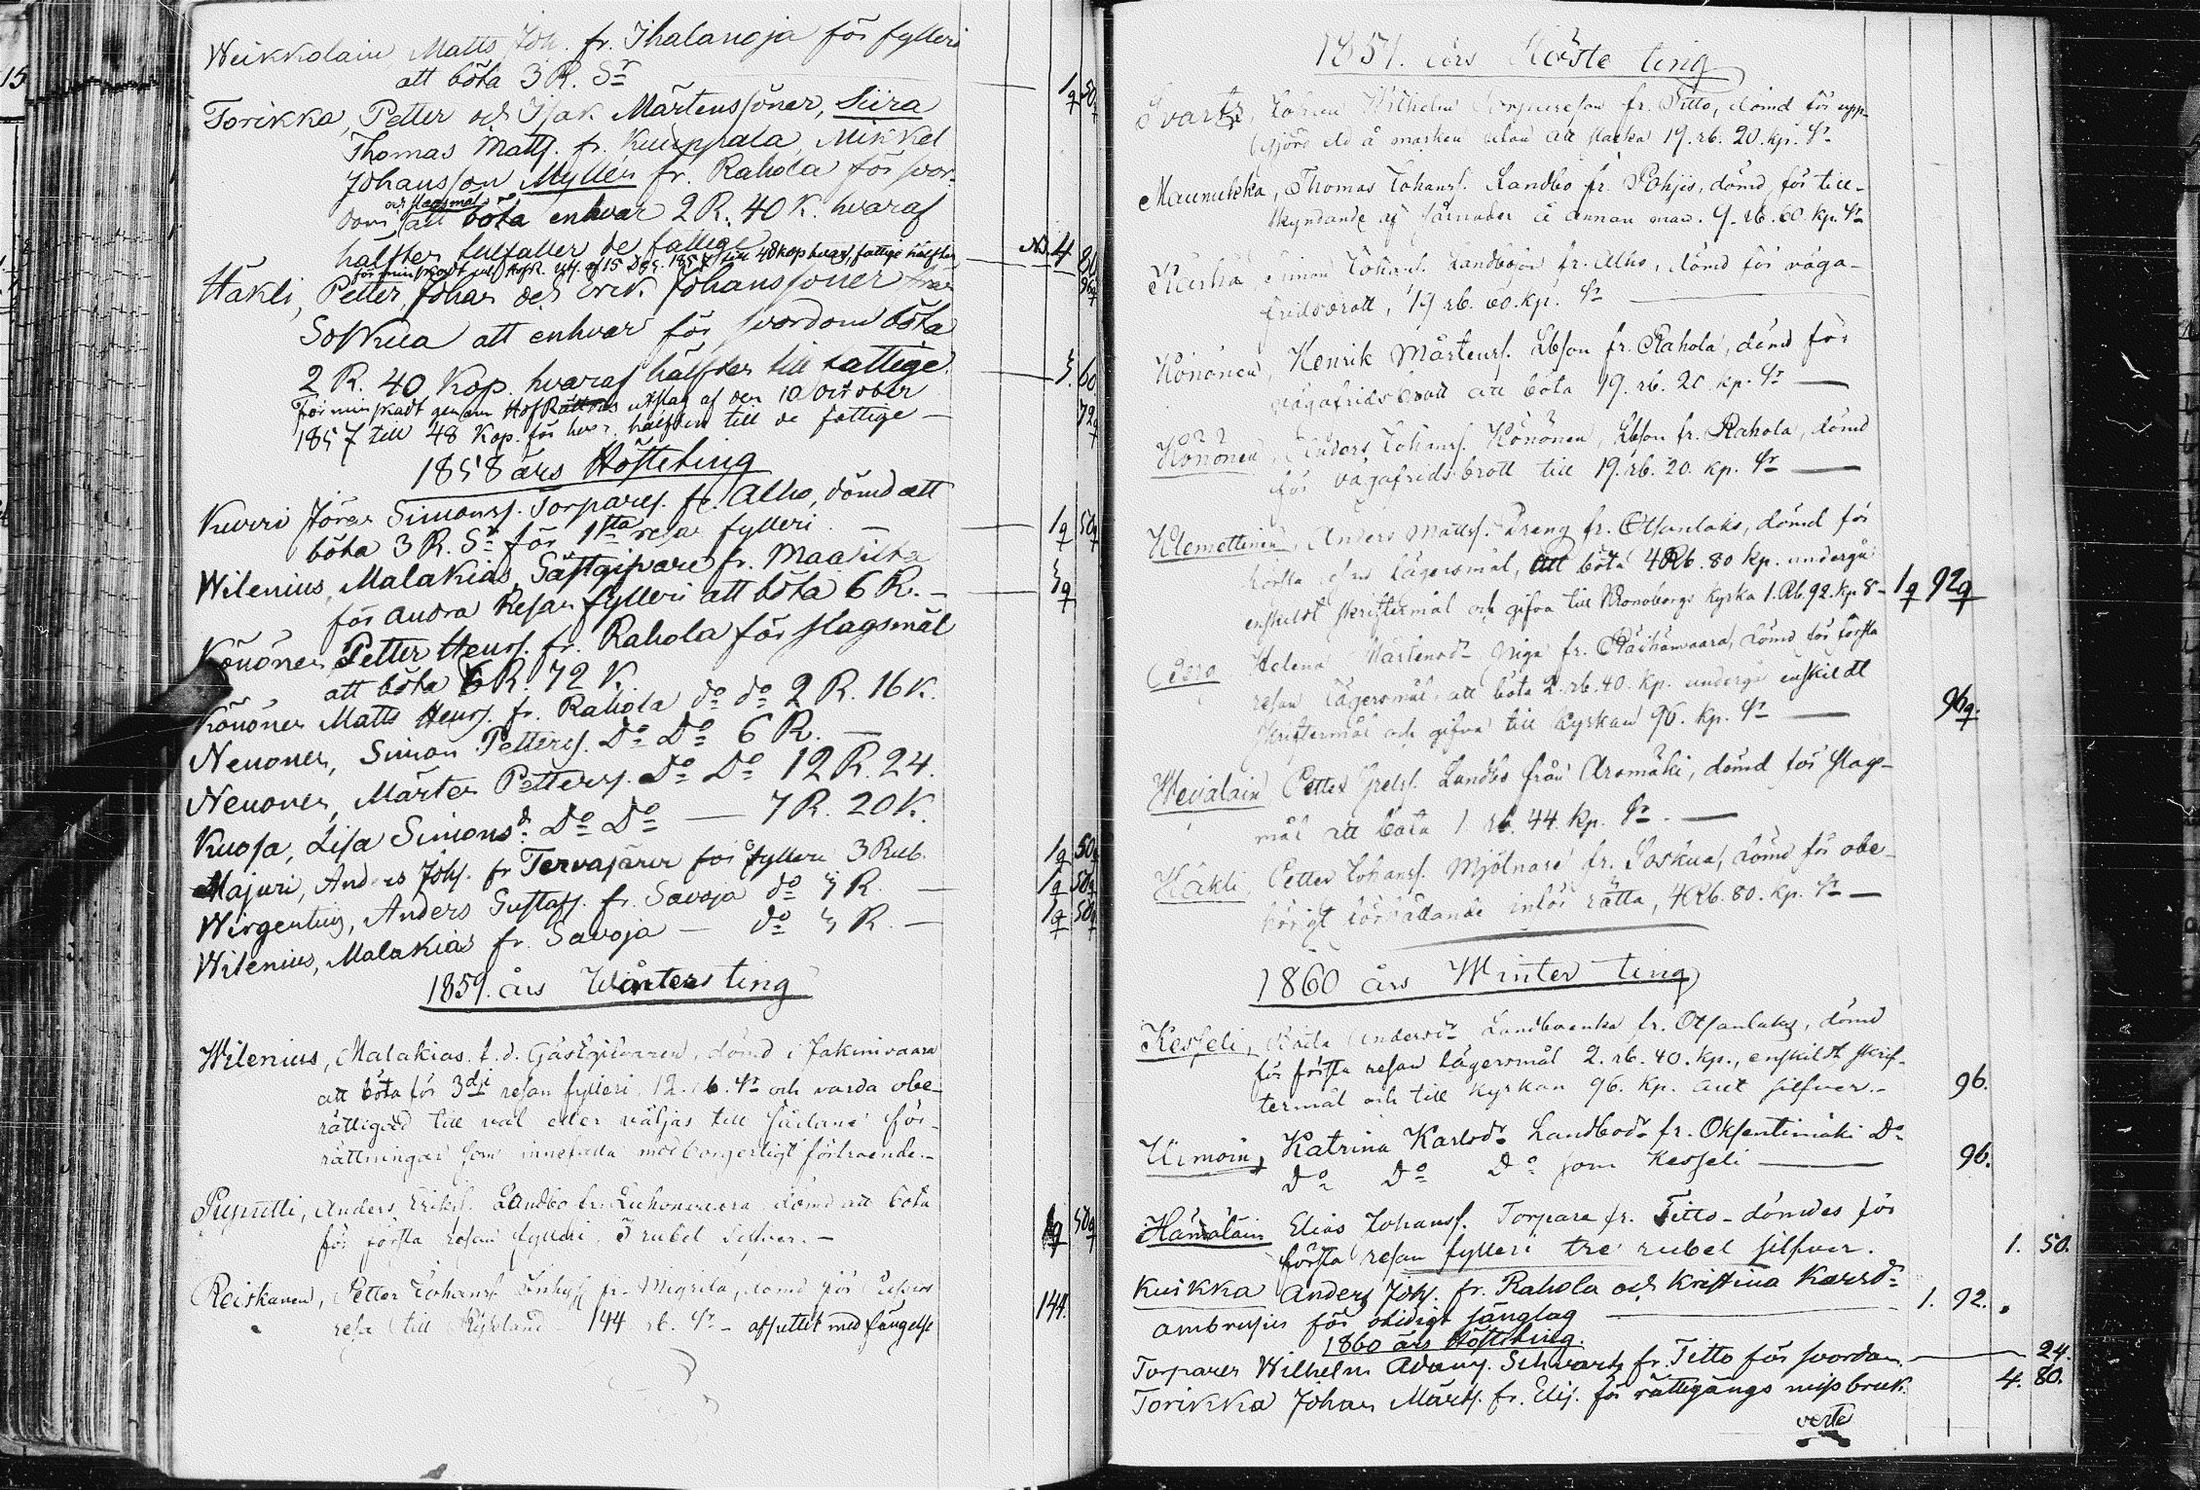 Weikkolain Matts Joh. fr. Ihalanoja för fylleri
att böta 3 R. Sr — 1 50
Torikka, Petter och Isak Mårtenssöner, Siira
Thomas Matts. fr. Kuuppala, Mikkel
Johansson Myller fr. Rahola för svor-
och slagsmål
dom att böta enhvar 2 R. 40 K. hvaraf
hälften tillfaller de fattige — 4 80
15 Dec. 1857 till 48 kop hvar, fattige hälften 96
Häkli, Petter, Johan och Erik Johanssöner från
Soskua att enhvar för svordom böta
2 R. 40 Kop. hvaraf hälften till fattige — 3. 60
Förminskadt genom HofRättens utslag af den 10 October
1857 till 48 Kop. för hvar, hälften till de fattige — 72
1858 års Hösteting
Kuvri Jöran Simonss. Torpares. fr. Alho, dömd att
böta 3 R. Sr för 1sta resan fylleri — 1 50
Wilenius, Malakias, Gästgifvare fr. Maasilta
för andra Resan fylleri att böta 6 R. — 3
Könönen Petter Henrs. fr. Rahola för slagsmål
att böta 6 R. 72 K.
Könönen Matts Henrs. fr. Rahola do do 2 R. 16 K.
Nenonen, Simon Petters. Do Do 6 R. —
Nenonen, Mårten Petters. Do Do 12 R. 24.
Kuosa, Lisa Simonsd. Do Do — 7 R. 20 K.
Majuri, Anders Johs. fr Tervajärvi för fylleri 3 Rub. 1 50
Wirgentius, Anders Gustafs. fr. Savoja do 3 R. — 1 50
Wilenius, Malakias fr. Savoja — do 3 R. — 1 50
1859. års Winters ting
Wilenius, Malakias f. d. Gästgifvaren, dömd i Jakimvaara
att böta för 3dje resan fylleri 12 rb. Sr och varda obe-
rättigad till val eller väljas till sådane för-
rättningar som innefatta medborgerligt förtroende. —
Puputti, Anders Eriks. Landbo fr. dömd att böta
för första resan fylleri 3 rubel Silfver. — 1 50
Reiskanen, Petter Johans. Inhys fr. Migrila, dömd för
resa till Ryssland 144 rb. Sr — afsuttit med fängelse 144.
1859. års Höste ting
Svartz, Johan Wilhelm fr. Titto, dömd för upp-
gjörd eld å marken utan att släcka 19. rb. 20. kp. Sr
Maunukka, Thomas Johans. Landbo fr. Pohjis, dömd, för till-
skyndande af sårnader å annan man. 9. rb. 60. kp. Sr
Simon Johans. Landboson fr. Alho, dömd för väga-
fridsbrott, 19 rb. 60. kp. Sr —
Könönen, Henrik Mårtens. Lbson fr. Rahola, dömd för
vägafridsbrott att böta 19. rb. 20 kp. Sr —
Könönen, Anders Johans. Könönen, Lbson fr. Rahola, dömd
för vägafridsbrott till 19. rb. 20. kp. Sr —
Klemettinen, Anders Matts. Dräng fr. Otsanlaks, dömd för
första resan lägersmål, att böta 4 Rb. 80 kp. undergå
enskildt skriftermål och gifva till Kronoborgs kyrka 1. Rb. 92. Kp. S — 1 92
Helena Mårtensdr. Piga fr. Räihänvaara, dömd för första
resan lägersmål, att böta 2. rb. 40. kp. undergå enskildt
skriftermål och gifva till kyrkan 96. kp. Sr — 96
Petter Landbo från Aromäki, dömd för slags-
mål att böta 1 rb. 44. kp. Sr. —
Häkli, Petter Johans. Mjölnare fr. Soskua, dömd för obe-
hörigt förhållande inför rätta, 4 Rb. 80. kp. Sr —
1860 års Winter ting
Kesseli, Andersdr. Landboenka fr. Otsanlaks, dömd
för första resan lägersmål 2. rb. 40. kp., enskildt skrif-
termål och till kyrkan 96. kp. allt silfver. — 96.
Katrina Karlsdr. Landbodr. fr. Oksentimäki Do
Do Do Do som Kesseli — 96.
Hämäläin Elias Johans. Torpare fr. Titto — dömdes för
första resan fylleri tre rubel silfver. 1. 50.
Kuikka Anders Johs. fr. Rahola och Kristina Karlsd.
Ambrusin för otidigt sänglag — 1. 92.
1860 års Hösteting.
Torparen Wilhelm Adams. Schvartz fr. Titto för svordom. — 24.
Torikka Johan Mårts. fr. Elis. för rättegångs missbruk. 4. 80.
verte